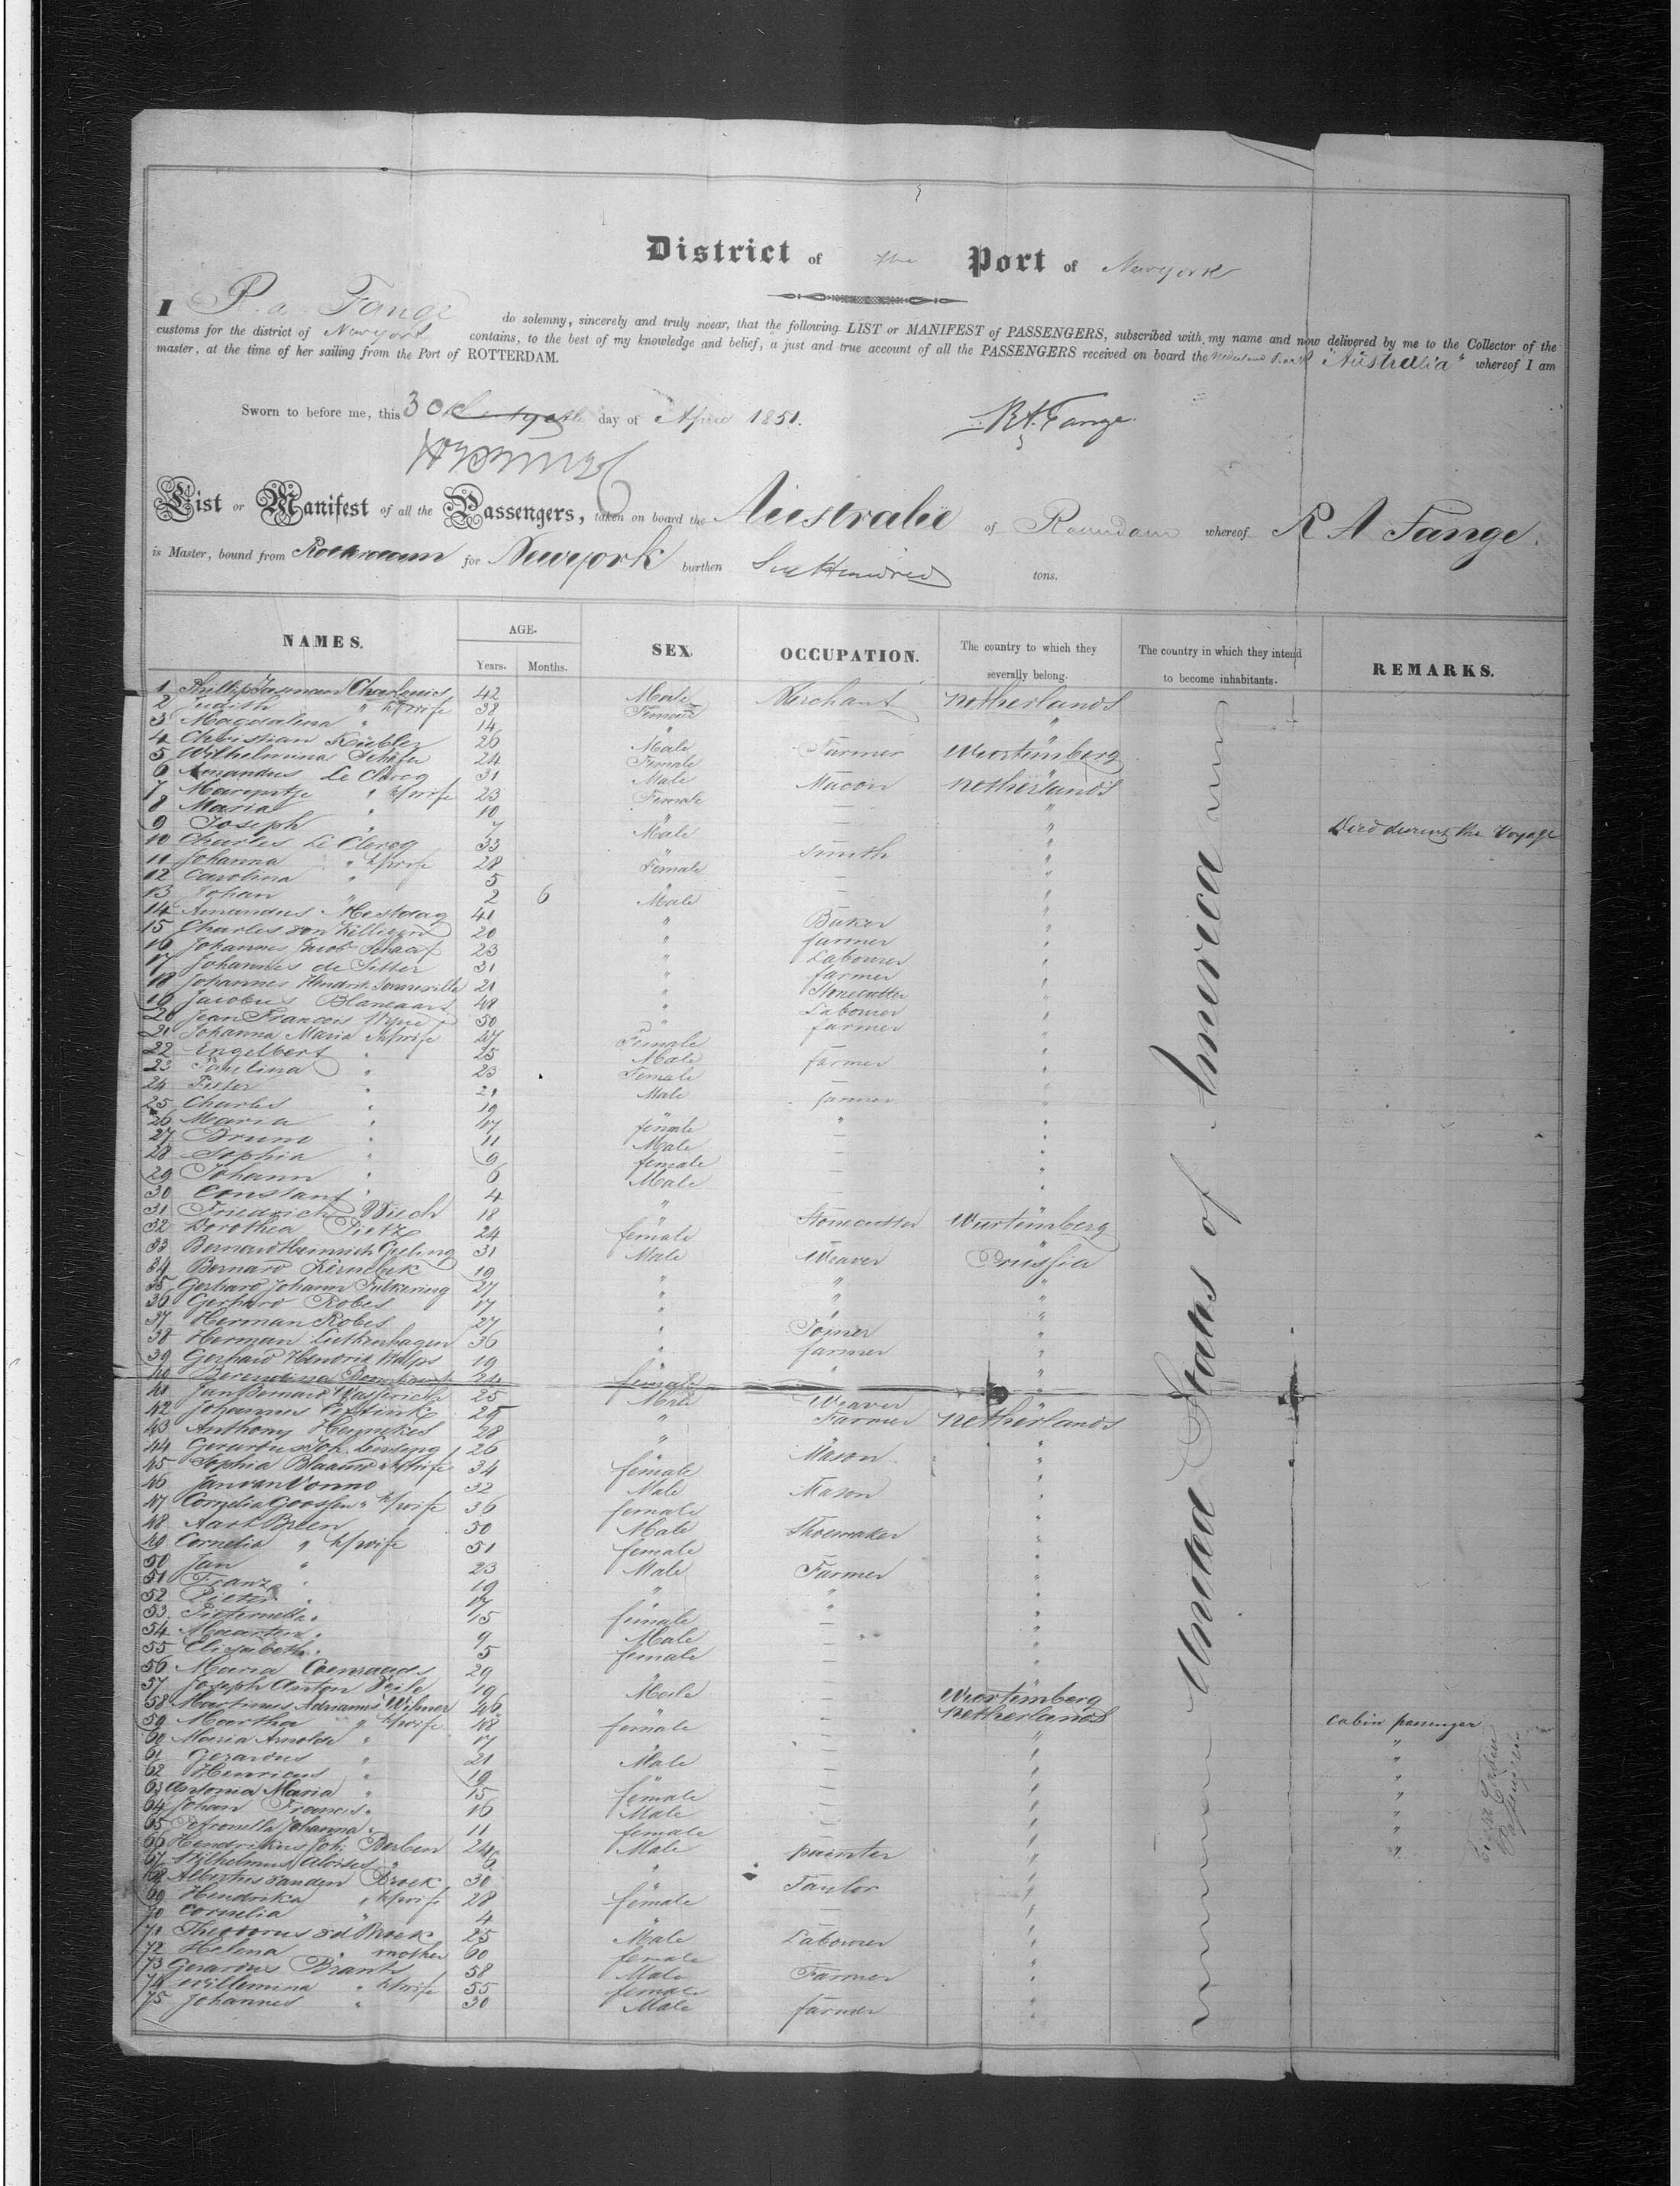 District of the Port of Newyork
I R. A. Fange do solemny, sincerely and truly swear, that the following LIST or MANIFEST of PASSENGERS, subscribed with my name and now delivered by me to the Collector of the
customs for the district of Newyork contains, to the best of my knowledge and belief, a just and true account of all the PASSENGERS received on board the "Australia" whereof I am
master, at the time of her sailing from the Port of ROTTERDAM.
Sworn to before me, this 30 day of April 1851.
R A. Fange
List or Manifest of all the Passengers, taken on board the Australie of whereof R A Fange.
is Master, bound from Rotterdam for Newyork burthen Six Hundred tons.
NAMES. AGE. Years. Months. SEX. OCCUPATION. The country to which they severally belong. The country in which they intend to become inhabitants. REMARKS.
United States of America
1 Phillip Charlouis 42 Male Merchant Netherlands
2 Judith " h/wife 38 Female "
3 Magdalena " 14 "
4 Christian Kübler 26 Male Farmer Wurtemberg
5 Wilhelmina Schäfer 24 Female "
6 Amandus Le Clercq 31 Male Macon Netherlands
7 " h/wife 23 Female — "
8 Maria " 10 " — "
9 Joseph " 7 Male — " Died during the Voyage
10 Charles Le Clercq 33 " Smith "
11 Johanna " h/wife 28 Female — "
12 Carolina " 5 " — "
13 Johan " 2 6 Male — "
14 Amandus Mestdag 41 " Baker "
15 Charles 20 " farmer "
16 Johannes Jacob Schaaf 23 " Labourer "
17 Johannes de Sitter 31 " farmer "
18 Johannes Hendrik 21 " Stonecutter "
19 Jacobus Blancaart 48 " Labourer "
20 Jean Francois 50 " farmer "
21 Johanna Maria h/wife 47 Female — "
22 Engelbert " 25 Male farmer "
23 Paulina " 23 Female — "
24 Pieter " 21 Male farmer "
25 Charles " 19 " " "
26 Maria " 17 female — "
27 Bruno " 11 Male — "
28 Sophia " 9 female — "
29 Johann " 6 Male — "
30 Constant " 4 " — "
31 Friedrich 18 " Stonecutter Wurtemberg
32 Dorothea Dietz 24 female — "
33 Bernard Heinrich 31 Male Weaver Prussia
34 Bernard 19 " " "
35 Gerhard Johann 27 " " "
36 Gerhard Robes 17 " " "
37 Herman Robes 27 " Joiner "
38 Herman 36 " farmer "
39 Gerhard Hendrik 19 " " "
40 Berendina 24 female — "
41 Jan Bernard 25 Male Weaver "
42 Johannes 25 " Farmer Netherlands
43 Anthony Hennekes 28 " "
44 Gerardus Joh. 26 " Mason "
45 Sophia h/wife 34 female — "
46 Jan van Vonno 32 Male Mason "
47 Cornelia Goossen " h/wife 36 female — "
48 Aart Breen 50 Male Shoemaker "
49 Cornelia " h/wife 51 female — "
50 Jan " 23 Male Farmer "
51 Franz " 19 " " "
52 Pieter " 17 " — "
53 Pieternella " 15 female — "
54 Maarten " 9 Male — "
55 Elisabeth " 5 female — "
56 Maria Coenraads 29 " — "
57 Joseph Anton 19 Male — Wurtemberg
58 Martinus Adrianus 46 " — Netherlands
59 Martha " h/wife 48 female — " cabin passenger
60 Maria Arnolda " 17 " — " "
61 Gerardus " 21 Male — " "
62 Henricus " 19 " — " "
63 Antonia Maria " 15 female — " "
64 Johan Francis " 16 Male — " "
65 Petronella Johanna " 11 female — " "
66 Hendrikus Joh. Berben 24 Male painter " "
67 Wilhelmus Aloises " 6 " — "
68 Albertus vanden Broek 30 " Taylor "
69 Hendrika " h/wife 28 female — "
70 Cornelia " 4 " — "
71 Theodorus v d Broek 25 Male Labourer "
72 Helena " mother 60 female — "
73 Gerardus Brants 58 Male Farmer "
74 Willemina " h/wife 55 female — "
75 Johannes " 30 Male farmer "